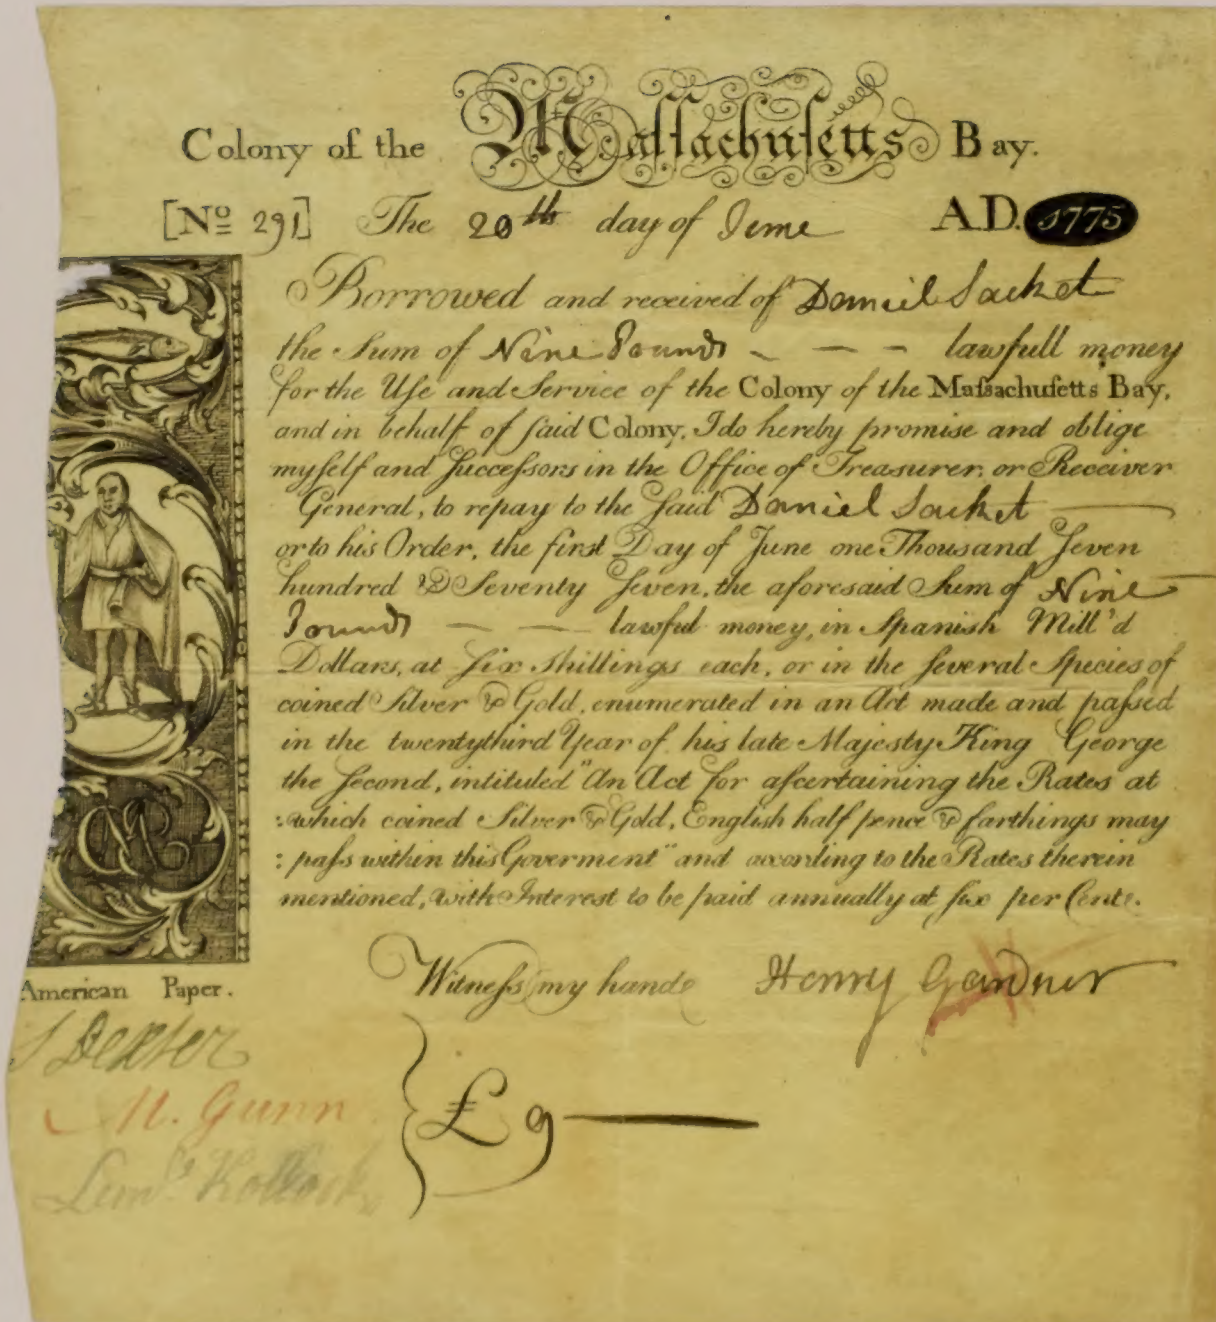 Colony of the Maſſachuſetts Bay.
[No 291] The 20th day of June A.D. 1775
Borrowed and received of Daniel Sacket
the Sum of Nine Pounds – — – lawfull money
for the Uſe and Service of the Colony of the Maſsachuſetts Bay,
and in behalf of ſaid Colony, I do hereby promise and oblige
myſelf and Succeſsors in the Office of Treasurer, or Receiver
General, to repay to the ſaid Daniel Sacket —
or to his Order, the first Day of June one Thousand Seven
hundred & Seventy Seven, the aforesaid Sum of Nine
Pounds — — lawful money, in Spanish Mill'd
Dollars, at ſix Shillings each, or in the ſeveral Species of
coined Silver & Gold, enumerated in an Act made and paſsed
in the twentythird Year of his late Majesty King George
the Second, intituled "An Act for aſcertaining the Rates at
:which coined Silver & Gold, English half pence & farthings may
:paſs within this Goverment" and according to the Rates therein
mentioned, with Interest to be paid annually at ſix per Cent.
Witneſs my hand Henry Gardner
American Paper.
S Dexter
M. Gunn
Leml. Kollock
£ 9 —